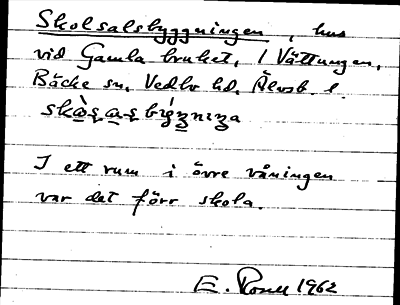 Skolsalsbyggningen, hus
vid Gamla bruket, 1 Vättungen,
Bäcke sn, Vedbo hd, Älvsb. l.
I ett rum i övre våningen
var det förr skola.
E. 1962